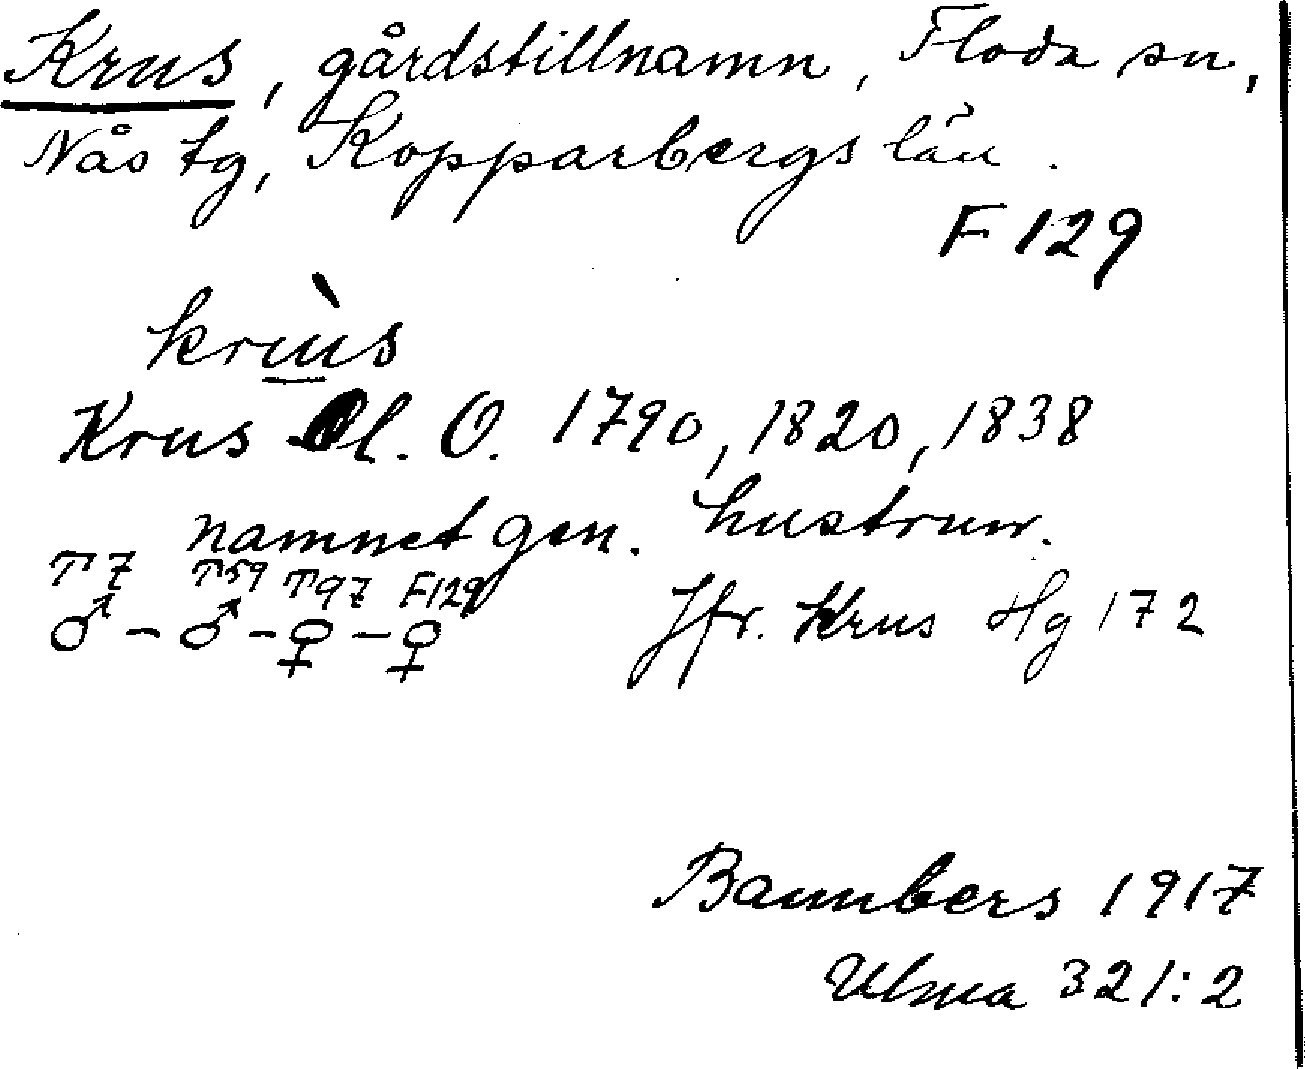 Krus, gårdstillnamn, Floda sn,
Nås tg, Kopparbergs län.
F 129
krùs
Krus l. O. 1790, 1820, 1838
namnet gen. hustrun.
T 7 T 59 T 97 F 129
♂ – ♂ – ♀ – ♀ Jfr. Krus Hg 172
Bannbers 1917
Ulma 321:2